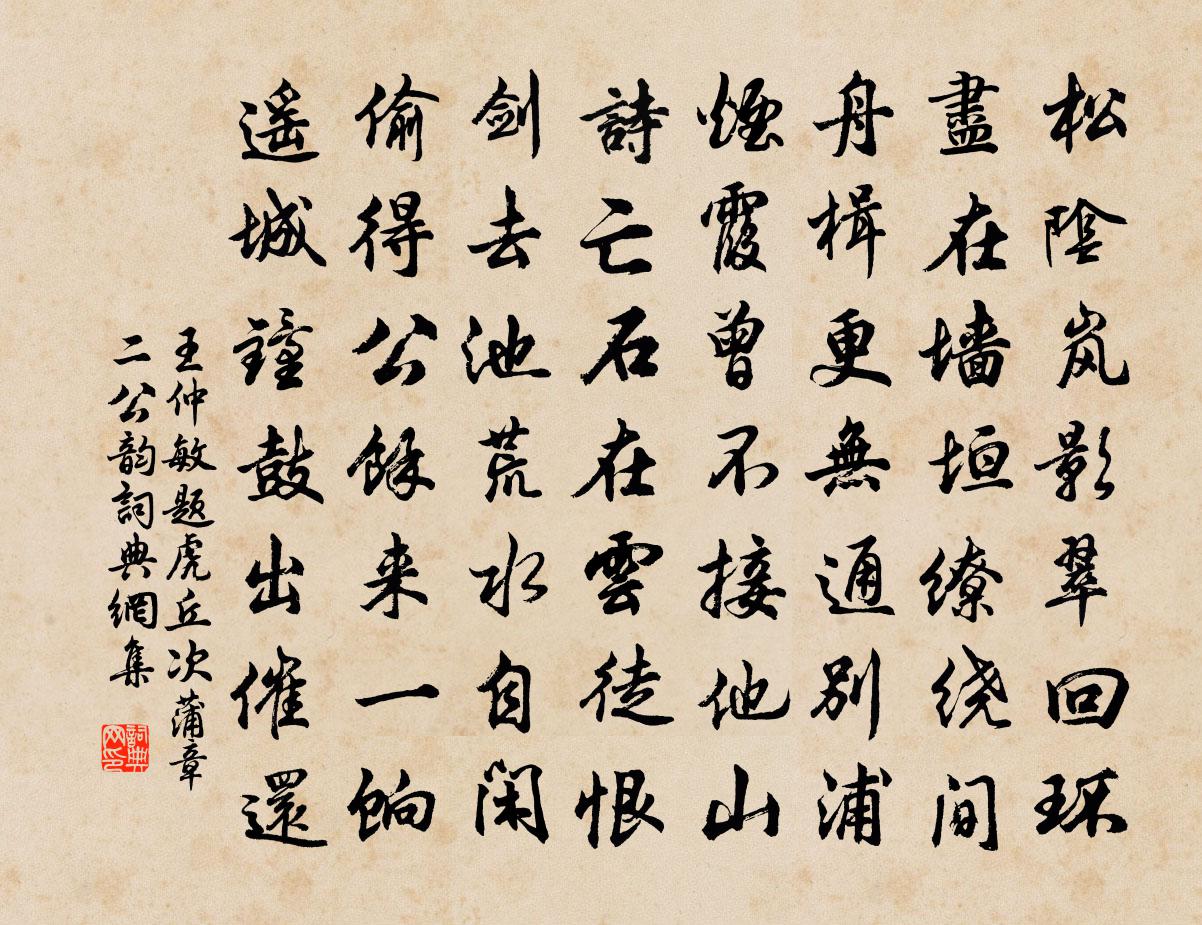 松陰岚影翠回环
盡在墙垣缭绕間
舟楫更無通别浦
煙霞曾不接他山
詩亡石在雲徒恨
剑去池荒水自闲
偷得公餘来一饷
遥城鐘鼓出催還
王仲敏题虎丘次蒲章
二公韵詞典網集
詞典网印